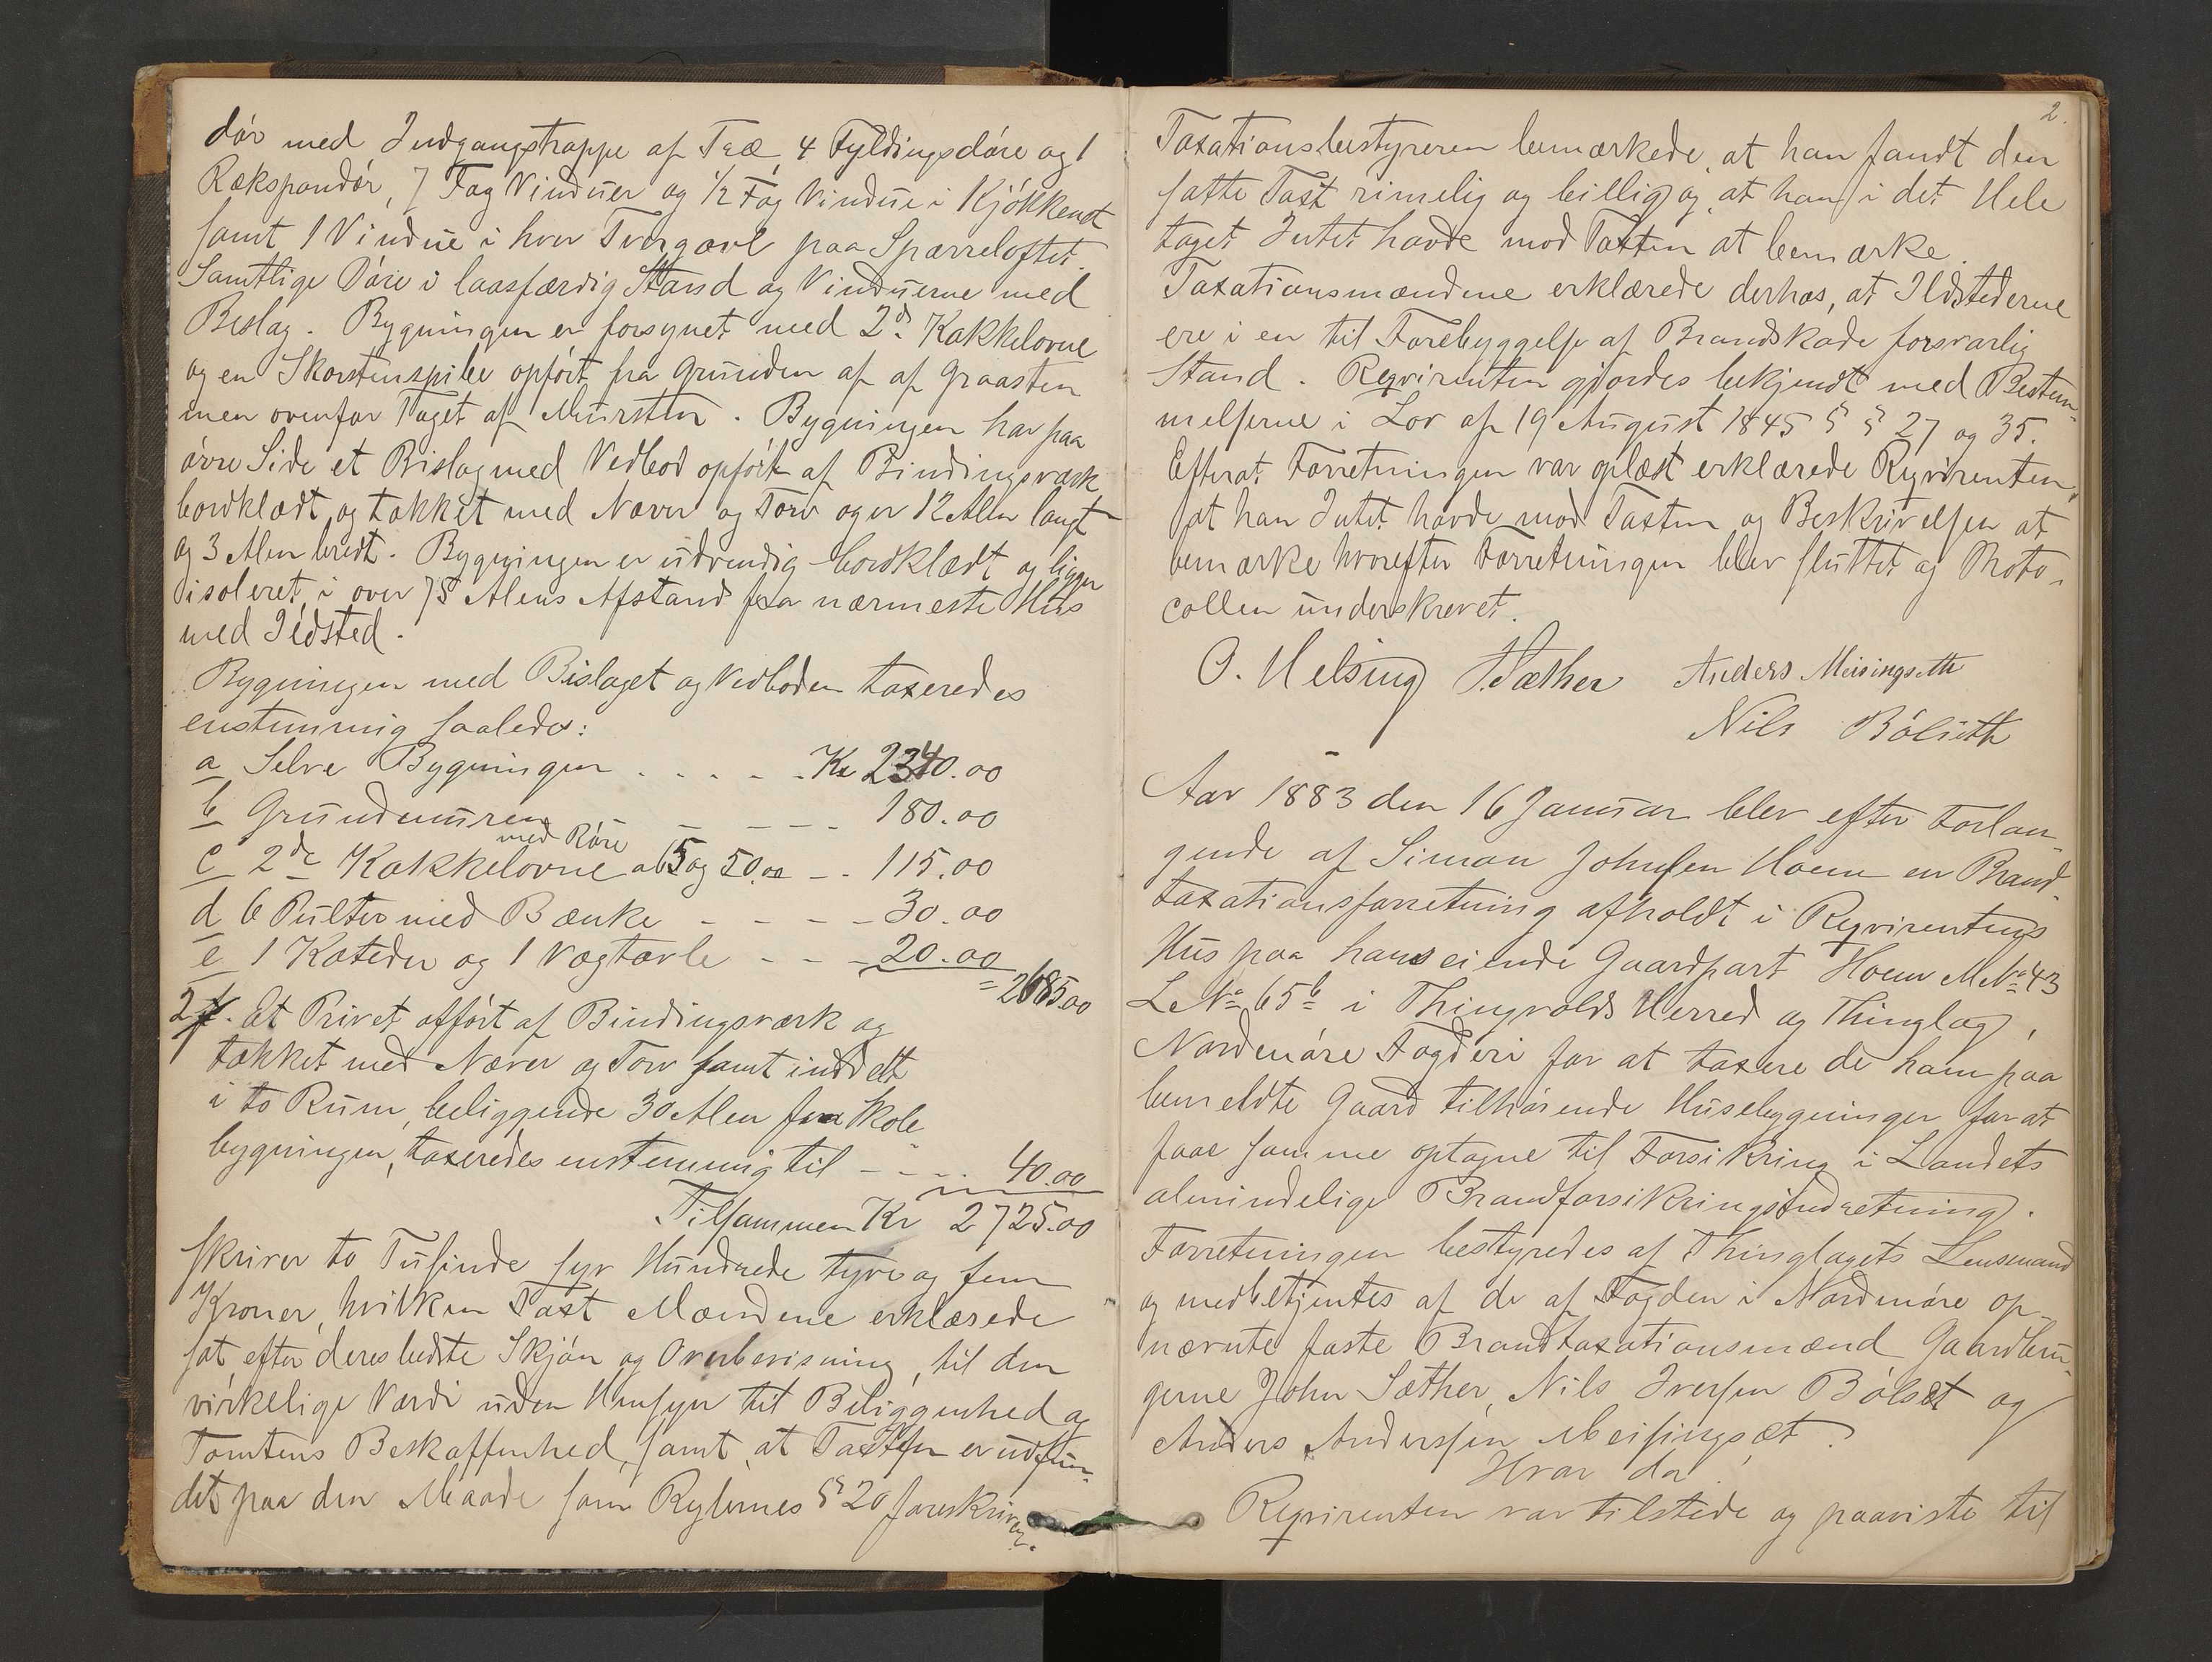 dör med Indgangstrappe af Træ, 4 Fyldingsdöre og 1
Rækspondör, 7 Fag Vinduer og 1/2 Fag Vindue i Kjökkenet
samt 1 Vindue i hver Tvergavl paa Sparreloftet.
Samtlige Döre i laasfærdig Stand og Vinduerne med
Beslag. Bygningen er forsynet med 2de Kakkelovne
og en Skorstenspibe opfört fra Grunden af af Graasten
men ovenfor Taget af Mursten. Bygningen har paa
övre Side et Bislag med Vedbod opfört af Bindingsværk
bordklædt og tækket med Næver og Torv og er 12 Alen langt
og 3 Alen bredt. Bygningen er udvendig bordklædt og ligger
isoleret, i over 75 Alens Afstand fra nærmeste Hus
med Ildsted.
Bygningen med Bislaget og Vedboden taxeredes
enstemmig saaledes:
a Selve Bygningen . . . . . . Kr 2340.00
b Grundmuren _ _ _ _ _ 180.00
med Röre
c 2de Kakkelovne a 65 og 50.00 _ . 115.00
d 6 Pulter med Bænke _ _ _ _ 30.00
e 1 Kateder og 1 Vægtavle _ _ _ 20.00
= 2685.00
2. Et Privet opfört af Bindingsværk og
tækket med Næver og Torv samt inddelt
i to Rum, beliggende 30 Alen fra Skole
bygningen, taxeredes enstemmig til _ _ . . 40.00
Tilsammen Kr 2725.00
skriver to Tusinde syv Hundrede tyve og fem
Kroner, hvilken Taxt Mændene erklærede
sat, efter deres bedste Skjön og Overbevisning, til den
virkelige Værdi uden Hensyn til Beliggenhed og
Tomtens Beskaffenhed, samt, at Taxten er udfun-
det paa den Maade som Reglernes § 20 foreskriver.
2.
Taxationsbestyreren bemærkede, at han fandt den
satte Taxt rimelig og billig og, at han i det Hele
taget Intet havde mod Taxten at bemærke.
Taxationsmændene erklærede derhos, at Ildstederne
ere i en til Forebyggelse af Brandskade forsvarlig
Stand. Reqvirenten gjordes bekjendt med Bestem-
melserne i Lov af 19 August 1845 § § 27 og 35.
Efterat Forretningen var oplæst erklærede Reqvirenten,
at han Intet havde mod Taxten og Beskrivelsen at
bemærke hvorefter Forretningen blev sluttet og Proto-
collen underskrevet.
O. Helsing J. Sæther Anders Meisingseth
Nils Bölseth
Aar 1883 den 16 Januar blev efter Forlan-
gende af Simon Johnsen Hoem en Brand-
taxationsforretning afholdt i Reqvirentens
Hus paa hans eiende Gaardpart Hoem M No 43
L No 65b i Thingvolds Herred og Thinglag,
Nordmöre Fogderi for at taxere de ham paa
bemeldte Gaard tilhörende Husebygninger for at
faae samme optagne til Forsikring i Landets
almindelige Brandforsikringsindretning.
Forretningen bestyredes af Thinglagets Lensmand
og medbetjentes af de af Fogden i Nordmöre op-
nævnte faste Brandtaxationsmænd Gaardbru-
gerne John Sæther, Nils Iversen Bölset og
Anders Anderssen Meisingsæt.
Hvor da:
Reqvirenten var tilstede og paaviste til